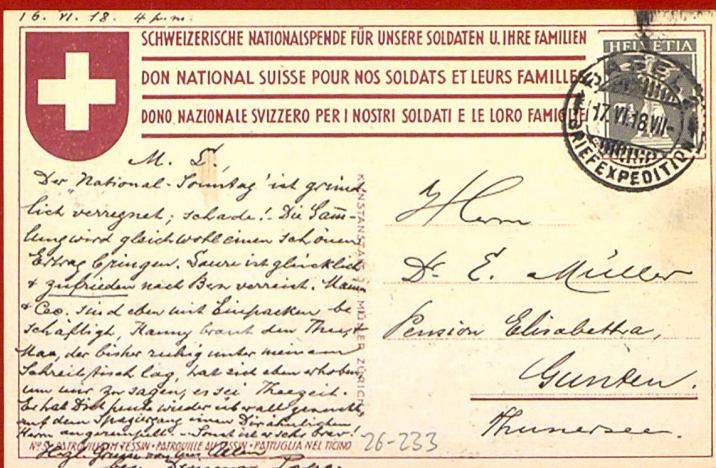 16. VI. 18. 4 p.m.
SCHWEIZERISCHE NATIONALSPENDE FÜR UNSERE SOLDATEN U. IHRE FAMILIEN
DON NATIONAL SUISSE POUR NOS SOLDATS ET LEURS FAMILLE
DONO NAZIONALE SVIZZERO PER I NOSTRI SOLDATI E LE LORO FAMIGLIE
HELVETIA
17.VI.18.VII-
BRIEFEXPEDITION
M. L.,
Der "National-Sonntag" ist gründ-
lich verregnet; schade! - Die Samm-
lung wird gleichwohl einen schönen
Ertrag bringen. ist glücklich
& zufrieden nach Bern verreist. Mama
& Ceo. sind eben mit Einpacken be
schäftigt, Hanny braut den Thee,
Max, der bisher ruhig unter meinem
Schreibtisch lag, hat sich eben erhoben
um mir zu sagen, es sei Theezeit.
Er hat Dich heute wieder überall gesucht,
auf dem Spaziergang einen Dir ähnlichen
Herrn
Papa.
KUNSTANSTALT J. E. MÜLLER ZÜRICH
Herrn
Dr. E. Müller
Pension Elisabettha,
Gunten.
Thunersee.
PATROUILLE IM TESSIN · PATROUILLE AU TESSIN · PATTUGLIA NEL TICINO
26-233